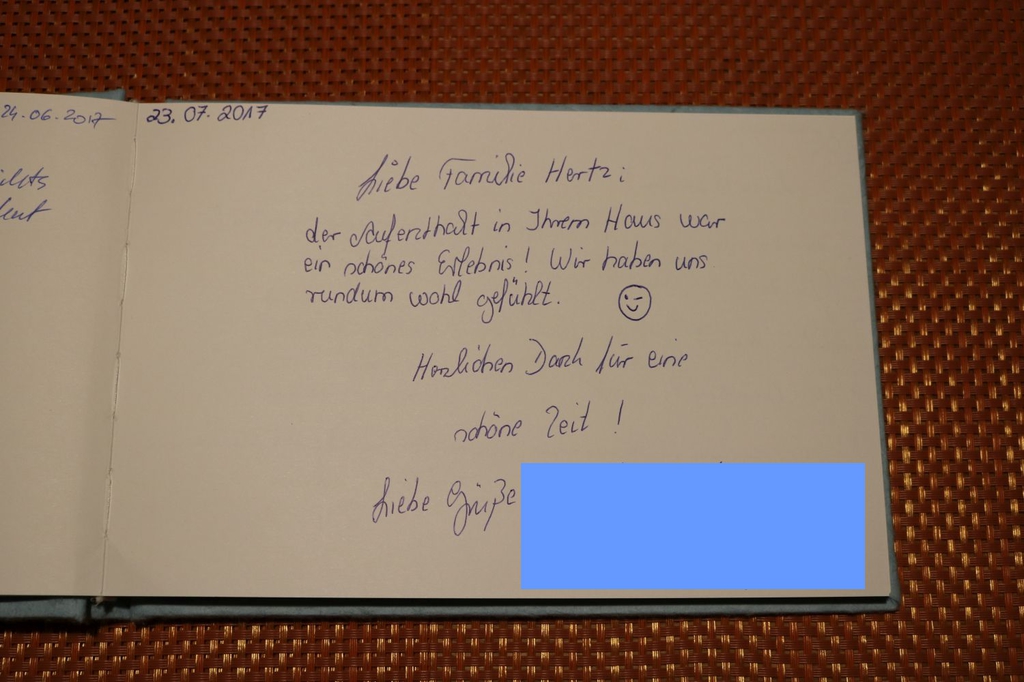 24.06.2017
23.07.2017
Liebe Familie Hertz:
der Aufenthalt in Ihrem Haus war
ein schönes Erlebnis! Wir haben uns
rundum wohl gefühlt. 😉
Herzlichen Dank für eine
schöne Zeit!
Liebe Grüße